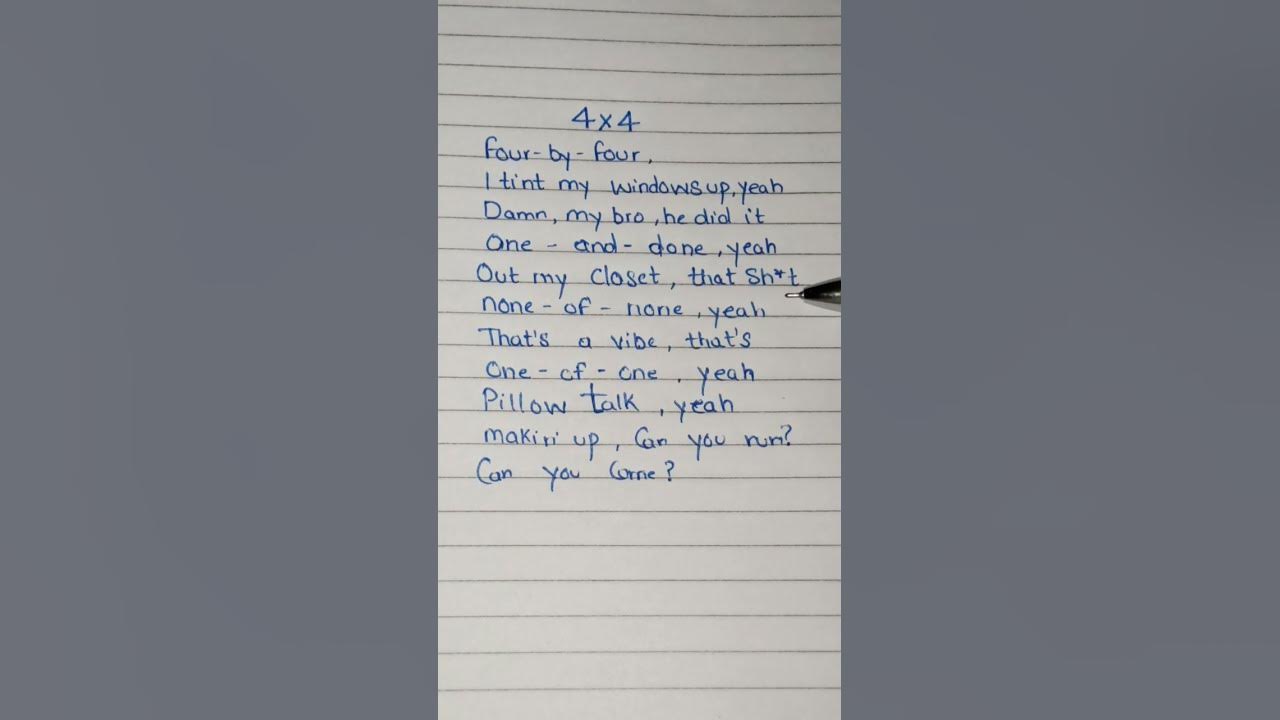 4x4
four-by-four,
I tint my windows up, yeah
Damn, my bro, he did it
One-and-done, yeah
Out my closet, that Sh*t
none-of-none, yeah
That's a vibe, that's
One-of-one, yeah
Pillow talk, yeah
makin up, Can you run?
Can you Come?